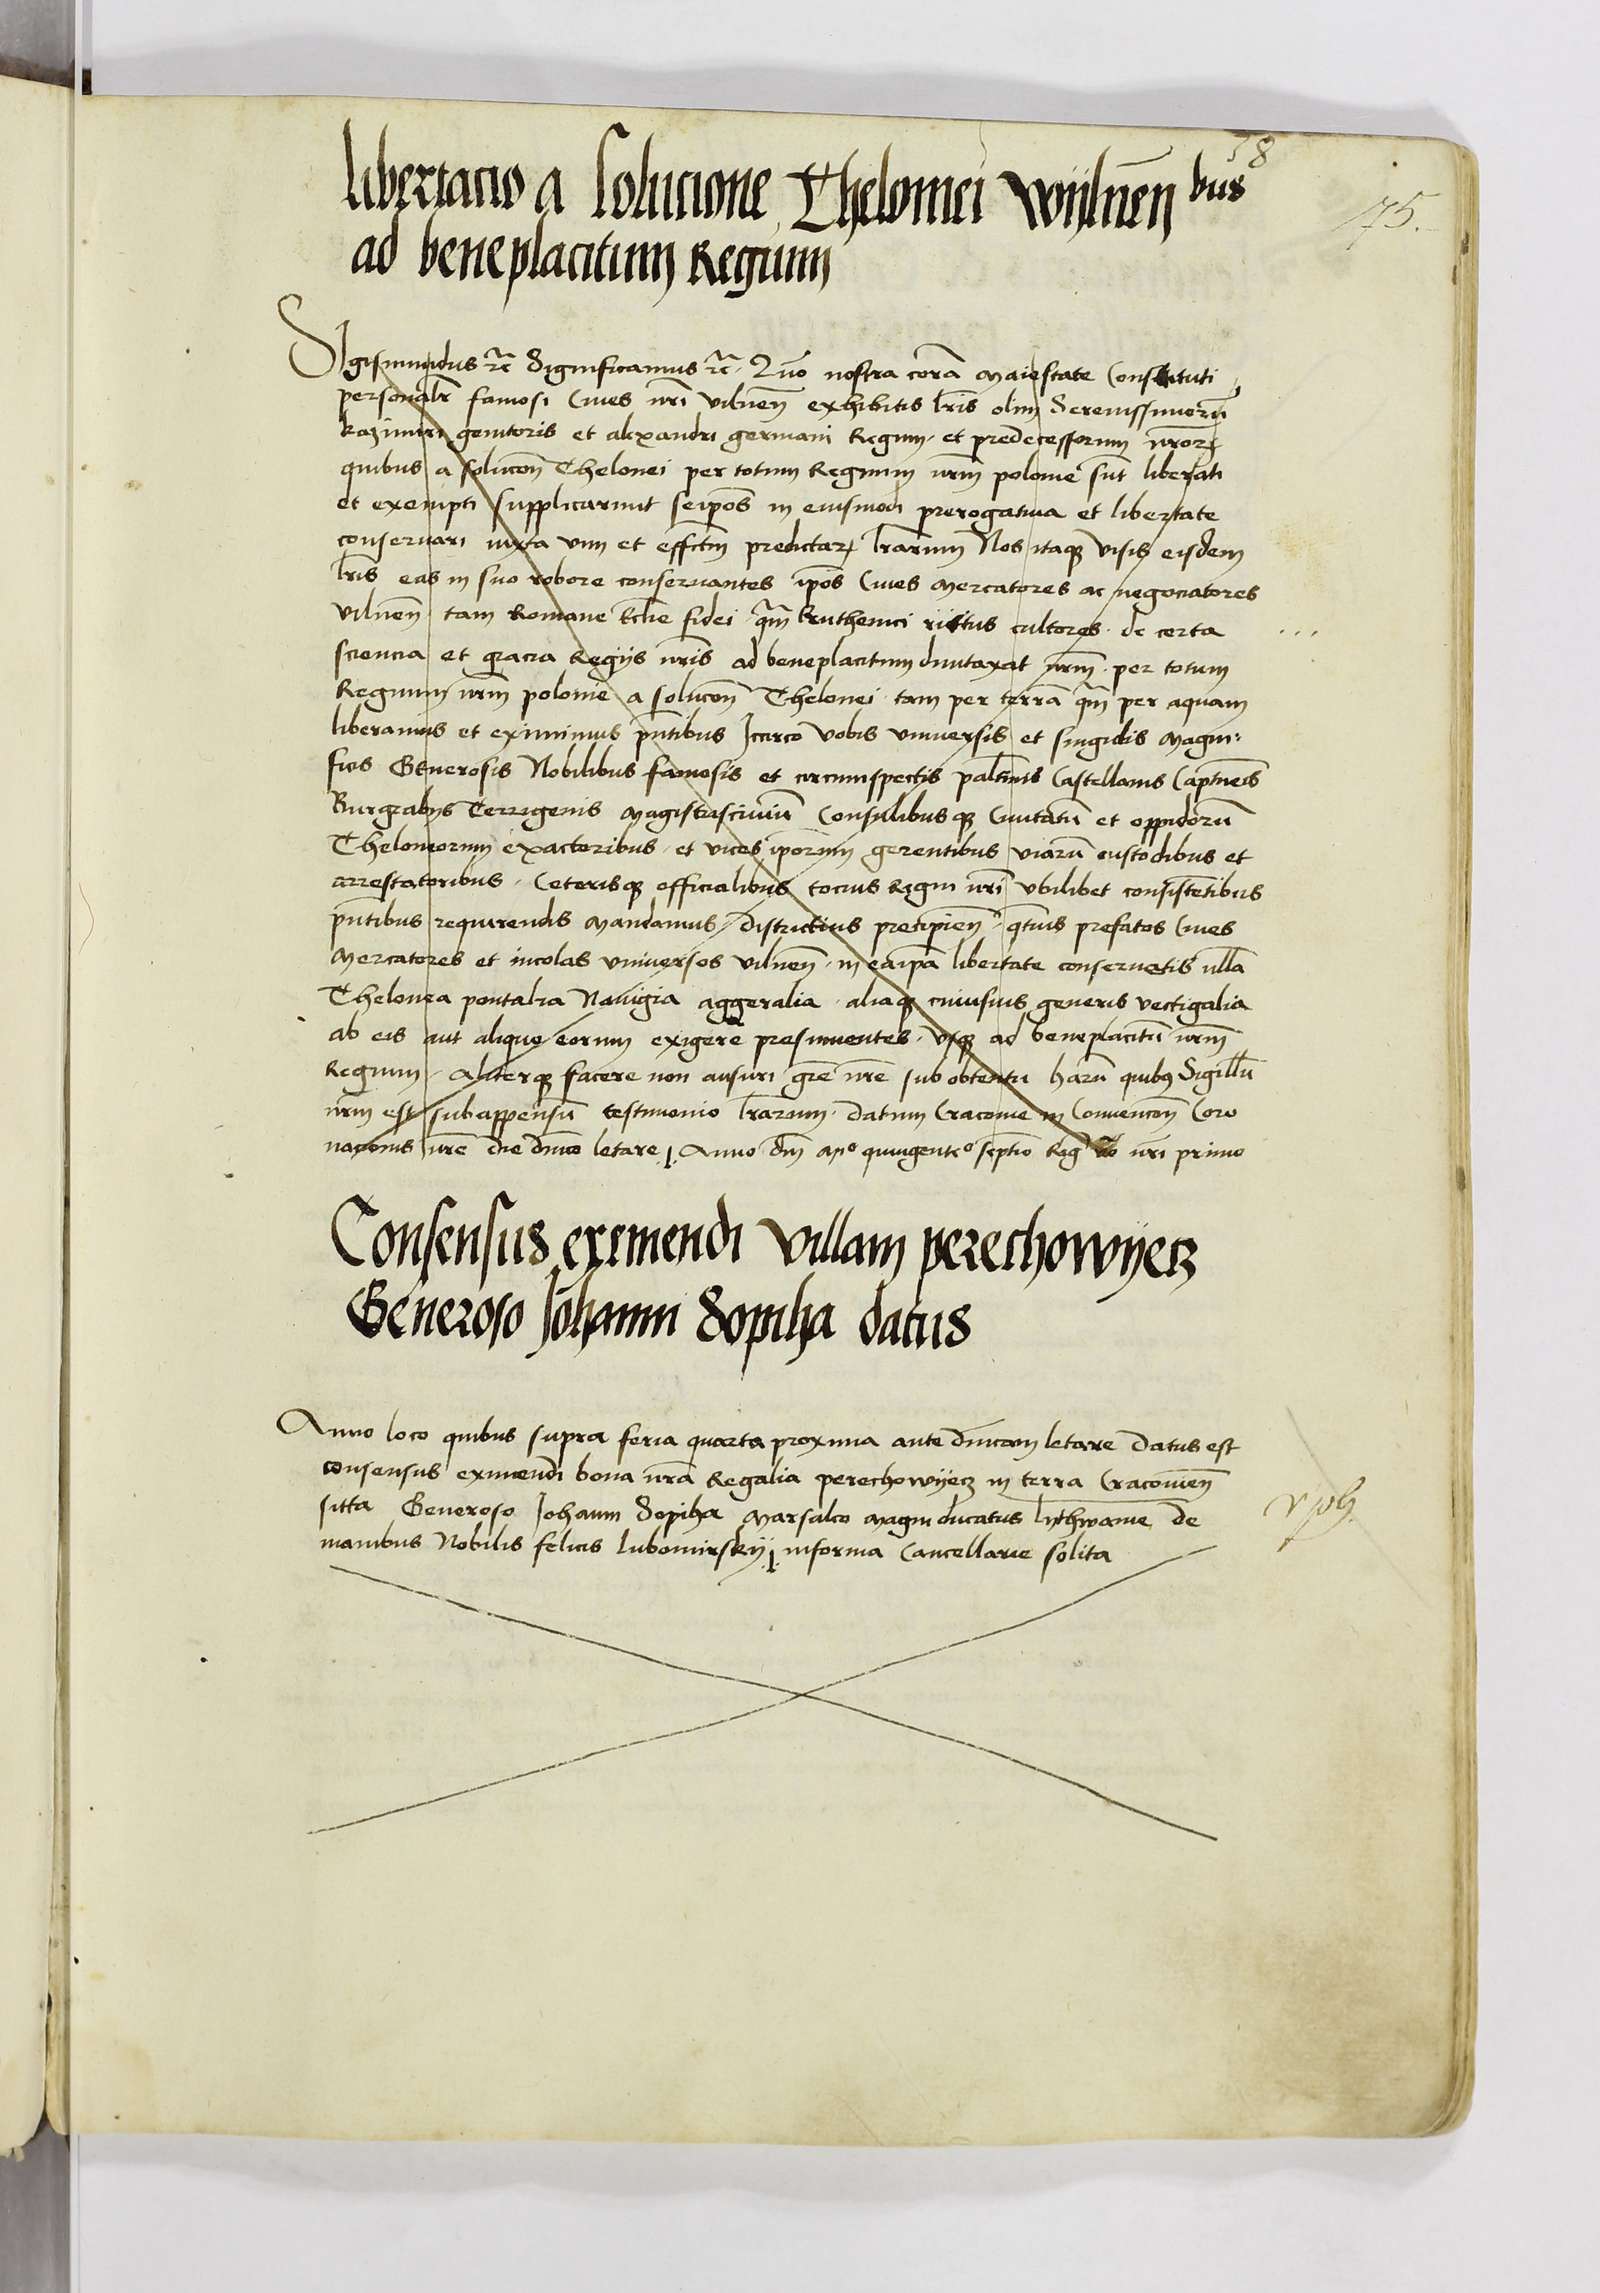 78
75.
libertacio a Solucione Thelomei Wijlnen̄ bus
ad beneplacitum Regium
Sigismundus ⁊c̄ Significamus ⁊c̄. Quo nostra corā Maiestate Constituti
personalr̄ famosi Ciues nr̄i vilnen̄ exhibitis lr̄is olim Serenissimorū
kazimiri genitoris et alexandri germani Regum. et predecessorum nr̄orꝝ
quibus a solucōn Thelonei per totum Regnum nrm̄ polonie sūt liberati
et exempti supplicarunt seip̄os in eiusmodi prerogatiua et libertate
conseruari iuxta vim et effctm̄ predictarꝝ lr̄arum Nos itaqꝫ visis eisdem
lr̄is eas in suo robore conseruantes ip̄os Ciues Mercatores ac negociatores
vilnen̄ tam Romane Ecl̄ie fidei qm̄ Ruthenici ritus cultores. de certa
sciencia et gracia Regijs nr̄is ad beneplacitum duntaxat nrm̄. per totum
Regnum nrm̄ polonie a solucōn Thelonei tam per terrā qm̄ per aquam
liberamus et eximimus pn̄tibus Iccirco vobis vniuersis et singulis Magni-
ficis Generosis Nobilibus famosis et circumspectis palt̄inis Castellanis Captn̄eis
Burgrabijs Terrigenis Magistrisciuiū Consulibusqꝫ Ciuitatū et oppidorū
Theloneorum exactoribus. et vices ip̄orum gerentibus viarū custodibus et
arrestatoribus. Ceterisqꝫ officialibus tocius Regni nr̄i vbilibet consistētibus
pn̄tibus requirendis Mandamus districtius precipien̄. qt̄nus prefatos Ciues
Mercatores et incolas vniuersos vilnen̄. in eaip̄a libertate conseruetis ulla
Thelonea pontalia Nauigia aggeralia. aliaqꝫ cuiusuis generis vectigalia
ab eis aut aliquo eorum exigere presumentes. vsqꝫ ad beneplacitū nrm̄
Regium. aliterqꝫ facere non ausuri gr̄e nr̄e sub obtentu harū quibꝯ Sigillū
nrm̄ est subappensū testimonio lr̄arum. datum Cracouie in Conuencōn Coro
nacōnis nr̄e die dn̄ico letare. Anno dn̄i Mᵒ quingenteᵒ septīo Reḡ v̄o nr̄i primo
Consensus eximendi villam perechowijecz
Generoso Johanni Sopiha datus
Anno loco quibus supra feria quarta proxima ante dn̄icam letare datus est
consensus eximendi bona nr̄a Regalia perechowijecz in terra Cracouien̄
sitta Generoso Johanni Sopiha Marsalco Magni ducatus lythwanie de
manibus Nobilis felicis lubomirskij in forma Cancellarie solita